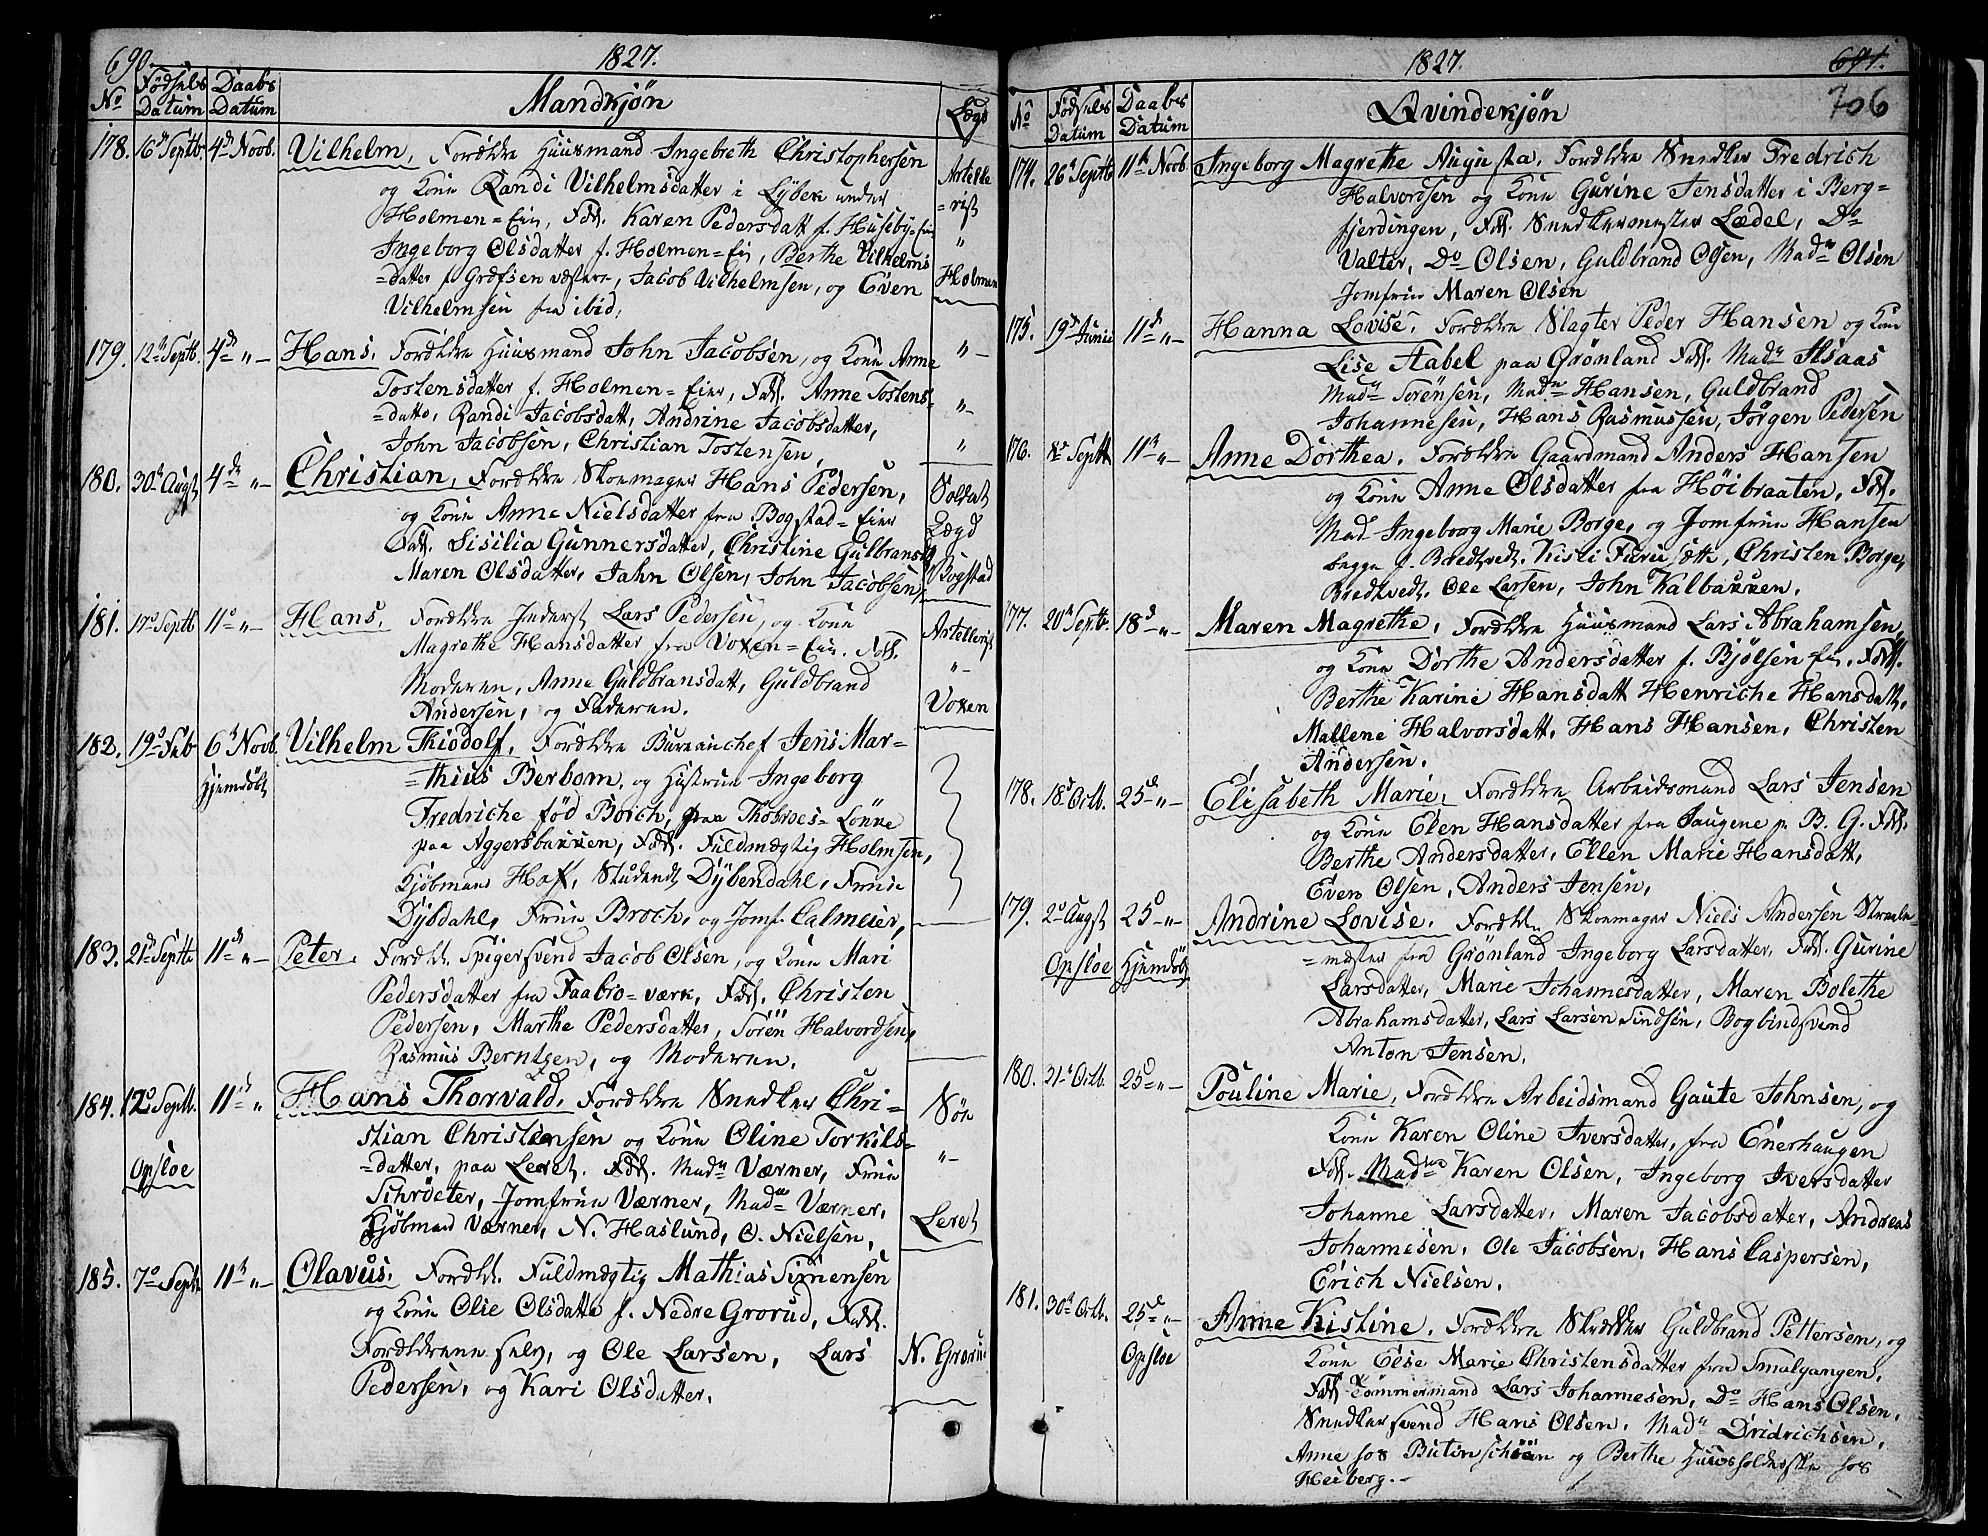 690. 1827.
No Fødsels Datum Daabs Datum Mandkjøn Lægd
178. 16d Septb. 4d Novb. Vilhelm, Forældre Huusmand Ingebreth Christophersen
og Kone Randi Vilhelmsdatter i Lybek under
Holmen=Eier, Fad. Karen Pedersdatt f. Huseby=Eier
Ingeborg Olsdatter f. Holmen=Eier, Berthe Vilhelms
=datter f. Græfsen vestre, Jacob Vilhelmsen, og Even
Vilhelmsen fra ibid,
Artelle
=rist
"
Holmen
179. 12te Septb. 4de "— Hans. Forældre Huusmand John Jacobsen, og Kone Anne
Tostensdatter f. Holmen=Eier, Fad. Anne Tostens-
=datte, Randi Jacobsdatt, Andrine Jacobsdatter,
John Jacobsen, Christian Tostensen,
"—
"—
"
180. 30d Augst 4de "— Christian, Forældre Skomager Hans Pedersen,
og Kone Anne Nielsdatter fra Bogstad=Eier
Fad. Sisilia Gunnersdatter, Christine Gulbransd
Maren Olsdatter, Jahn Olsen, John Jacobsen,
Soldat
Lægd
Bogstad
181. Septb 11d "— Hans. Forældre Inderst Lars Pedersen, og Kone
Magrethe Hansdatter fra Voxen=Eier. Fad.
Moderen, Anne Guldbransdatt, Guldbrand
Andersen, og Faderen.
Artellerist
"—
Voxen
182. 19d Feb 6d Novb. Vilhelm Thiodolf, Forældre Bureauchef Jens Mar=
Hjemdøbt =thius Berbom, og Hustrue Ingeborg
Fredriche fød Boich, paa Thobroes=Lønne
paa Aggersbakken, Fad. Fuldmægtig Holmsen,
Kjøbmand Hof, Student Dybendahl, Frue
Dybdahl, Frue Broch, og Jomf. Calmeier,
183. 21d Septb 11d "— Peter. Foræld. Spigersvend Jacob Olsen, og Kone Mari
Pedersdatter fra Faabro=værk, Fad. Christen
Pedersen, Marthe Pedersdatter, Sören Halvordsen,
Rasmus Berntzen, og Moderen.
184. 12d Septb. 11d " Hans Thorvald, Forældre Snedker Chri=
Opsloe stian Christensen og Kone Oline Torkils=
=datter, paa Leret. Fad. Madm Værner, Frue
Schröeter, Jomfrue Værner, Madm Værner,
Kjöbmand Værner, N. Haslund, O. Nielsen,
Söe
"—
Leret
185. 7d Septb 11d "— Olavüs. Foræld. Fuldmægtig Mathias Simensen
og Kone Olie Olsdatte f. Nedre Grorud, Fad.
Forældrene selv, og Ole Larsen, Lars
Pedersen, og Kari Olsdatter.
N. Grorud
1827. 691.
706
No Fødsels Datum Daabs Datum Qvindekjøn
174. 26d Septb 11te Novb. Ingeborg Magrethe Augusta, Forældre Snedker Fredrich
Halvordsen og Kone Gurine Jensdatter i Berg=
fjerdingen, Fad. Snedkermester Lædel, Do
Valter, Do Olsen, Guldbrand Olsen, Madm Olsen
Jomfrue Maren Olsen
175. 19d Junii 11d "— Hanna Lovise, Forældre Slagter Peder Hansen og Kone
Lise Tabel paa Grönland Fad. Madm
Madm Sörensen, Madm Hansen, Guldbrand
Johannesen, Hans Rasmussen, Jörgen Pedersen
176. Septb 11d "— Anne Dorthea. Forældre Gaardmand Anders Hansen
og Kone Anne Olsdatter fra Höibraaten, Fad.
Mad Ingeborg Marie Borge, og Jomfrue Hansen
begge f. Bredtvedt. Kisti Furusætt, Christen Borge,
Bredtvedt. Ole Larsen, John Kalbakken.
177. 20d Septb. 18d "— Maren Magrethe, Forældre Huusmand Lars Abrahamsen,
og Kone Dorthe Andersdatter f. Bjölsen Eie. Fad.
Berthe Karine Hansdatt Henriche Hansdatt,
Mallene Halvorsdatt, Hans Hansen, Christen
Andersen.
178. 18d Octb. 25d "— Elisabeth Marie, Forældre Arbeidsmand Lars Jensen
og Kone Elen Hansdatter fra Saugene p. B. G. Fad.
Berthe Andersdatter, Ellen Marie Hansdatt,
Even Olsen, Anders Jensen,
179. 2d Augst 25d "— Andrine Lovise. Foræld. Skomager Niels Andersen
Opsloe Hjemdöbt =mester fra Grönland Ingeborg Larsdatter, Fad. Gurine
Larsdatter, Marie Johannesdatter, Maren Bolethe
Abrahamsdatter, Lars Larsen Sindsen, Bogbindsvend
Anton Jensen.
180. 21d Octb. 25d "— Pouline Marie, Forældre Arbeidsmand Gaute Johnsen, og
Kone Karen Oline Iversdatter, fra Enerhaugen
Fad. Madm Karen Olsen, Ingeborg Iversdatter
Johanne Larsdatter, Maren Jacobsdatter, Andreas
Johannesen, Ole Jacobsen, Hans Caspersen,
Erich Nielsen.
181. 30d Octb. 25d "— Anne Kistine. Forældre Skrædder Guldbrand Pettersen, og
Opsloe Kone Else Marie Christensdatter fra Smalgangen.
Fad Tömmermand Lars Johannesen, Do Hans Olsen,
Snedkersvend Hans Olsen. Madm Dridrichsen,
Anne hos Butenschöen og Berthe Huusholderske hos
Heiberg.—